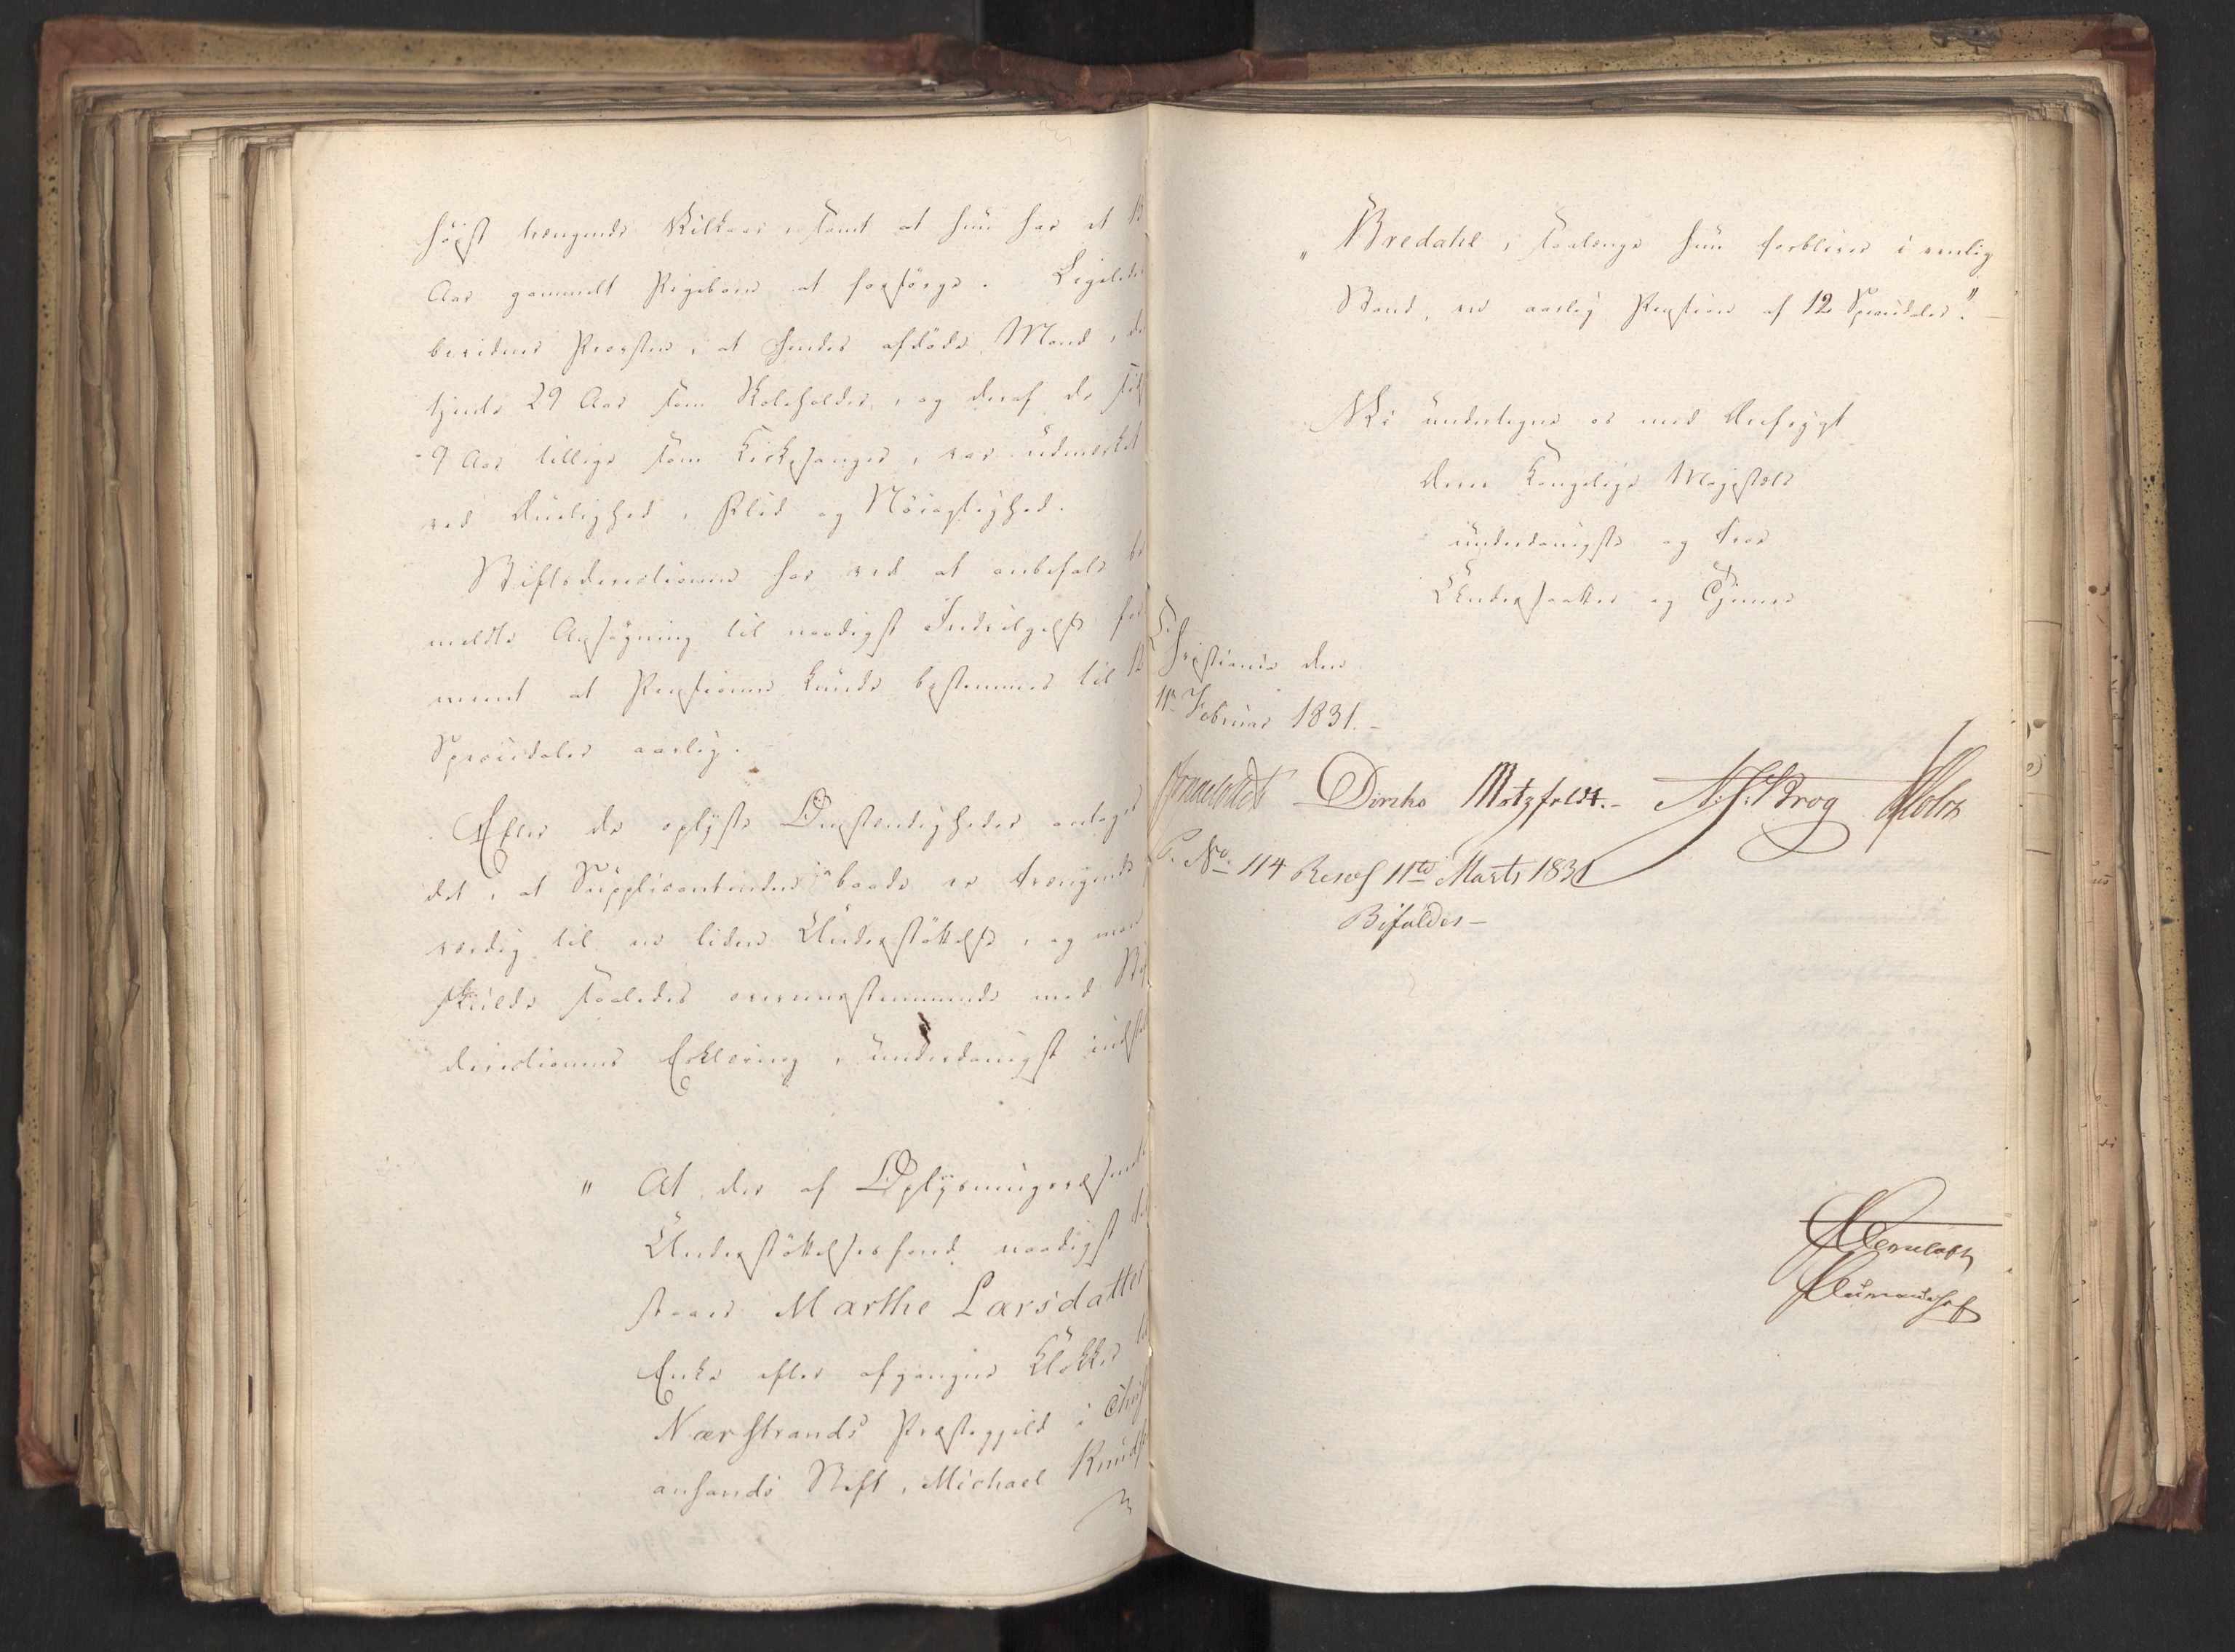 høist trængende Vilkaar, samt at hun har et
Aar gammelt Pigebarn at forsørge. Ligeledes
bevidner Provsten, at hendes afdøde Mand, der
tjente 29 Aar som Skoleholder, og deraf de sid
9 Aar tillige som Kirkesanger, var udmærket
ved Duelighed, Flid og Nøiagtighed.
Stiftsdirectionen har ved at anbefale be
meldte Ansøgning til naadigst Indvilgelse for
meent at Pensionen kunde bestemmes til 12
Speciedaler aarlig.
Efter de oplyste Omstændigheder antages
det, at Supplicantinden baade er trængende
værdig til en liden Understøttelse, og man
skulde saaledes overeensstemmende med Stift
directionens Erklæring, underdanigst indst
" At der af Oplysningsvæsenets
Understøttelsesfond naadigst til
staaes Marthe Larsdatter
Enke efter afgangne Klokker til
Nærstrands Præstegjeld i Christi
ansands Stift, Michael Knuds
" Bredahl, saalænge hun forbliver i enlig
Stand, en aarlig Pension af 12 Speciedaler." -
Vi undertegne os med Ærefrygt
Deres Kongelige Majestæts
underdanigste og troe
Undersaatter og Tjenere
Christiania den
11te Februar 1831. -
Diriks Motzfeldt. - N: J: Krog Holst
P. No. 114 Resol 11te Marts 1831
Bifaldes -